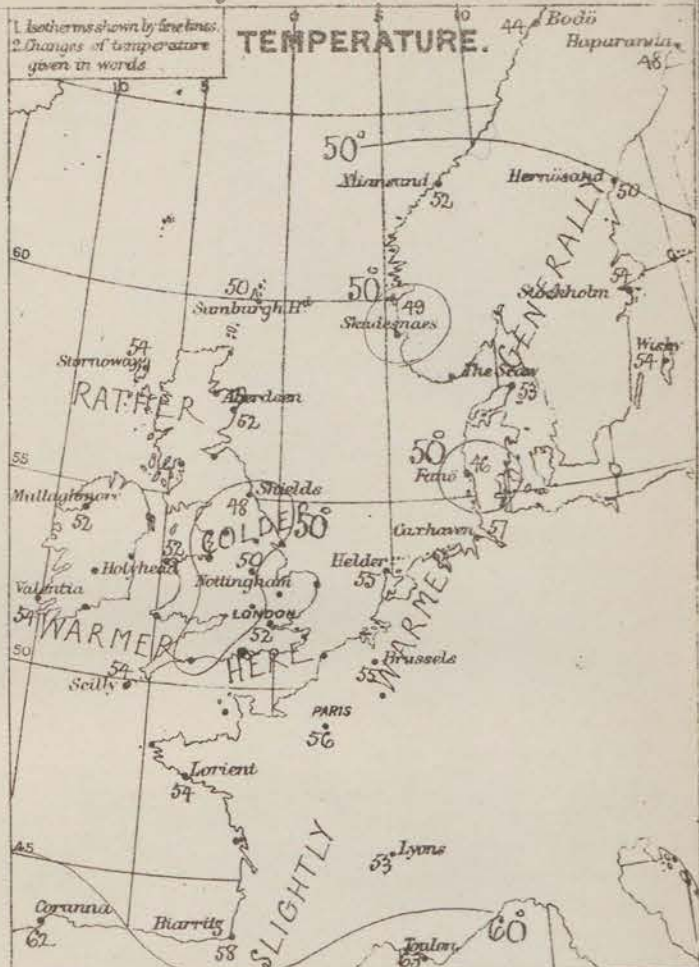 1. Isotherms shown by fine lines.
2. Changes of temperature
given in words
TEMPERATURE.
44 Bodö
Haparanda
48
10
5
0
5
10
50°
Xtiansund
52
Hernösand
50
60
50
Sumburgh Hd
50°
49
Skudesnaes
Stockholm
54
GENERALLY
Stornoway
54
RATHER
Aberdeen
52
The Scaw
53
Wisby
54
55
50°
Fanö
46
Mullaghmore
52
Shields
48
COLDER
50°
Cuxhaven
57
Holyhead
52
50
Nottingham
Helder
55
Valentia
54
LONDON
52
WARMER
HERE
WARMER
50
54
Scilly
Brussels
55
PARIS
56
Lorient
54
SLIGHTLY
45
Lyons
53
Corunna
62
Biarritz
58
60°
Toulon
65